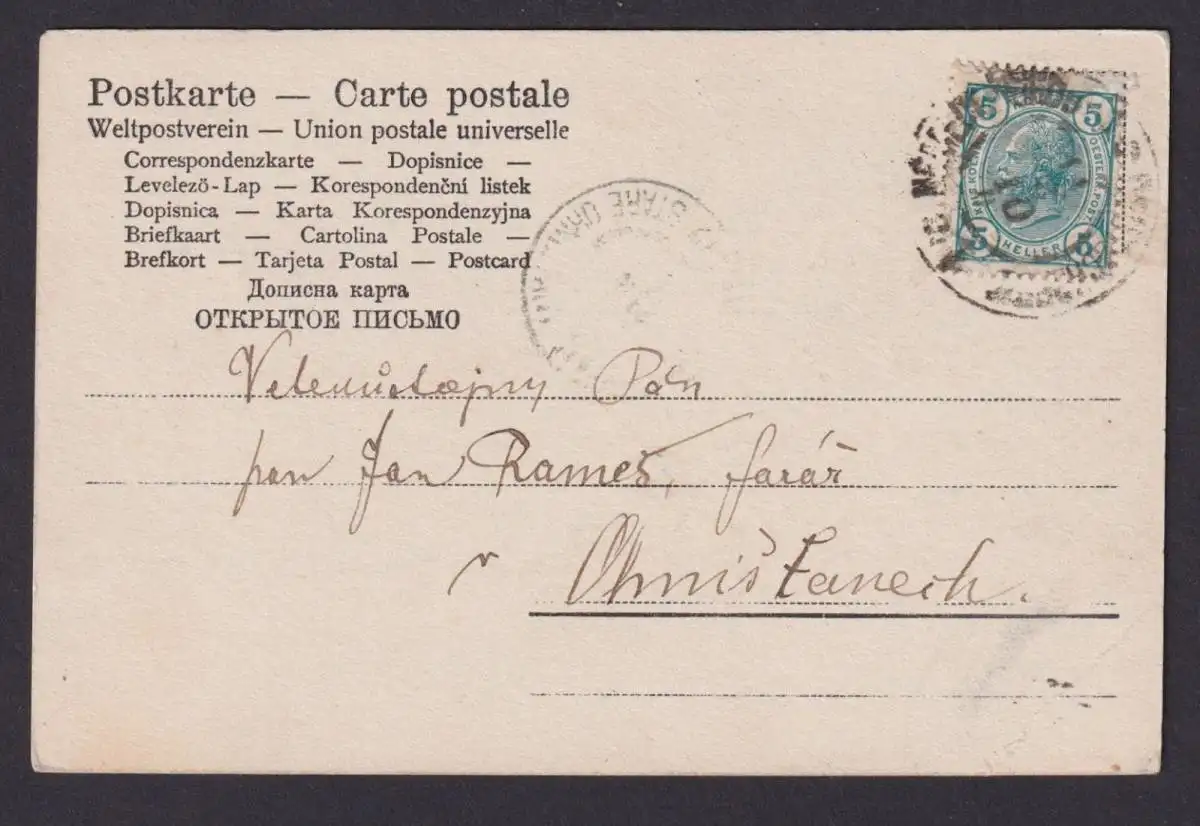 Postkarte — Carte postale
Weltpostverein — Union postale universelle
Correspondenzkarte — Dopisnice —
Levelező-Lap — Korespondenční listek
Dopisnica — Karta Korespondenzyjna
Briefkaart — Cartolina Postale —
Brefkort — Tarjeta Postal — Postcard
Дописна карта
ОТКРЫТОЕ ПИСЬМО
5 5
KAIS. KÖN. OESTERR. POST
5 HELLER 5
STARE
Pán
pan Jan Rameš, farář
v Ohništanech.